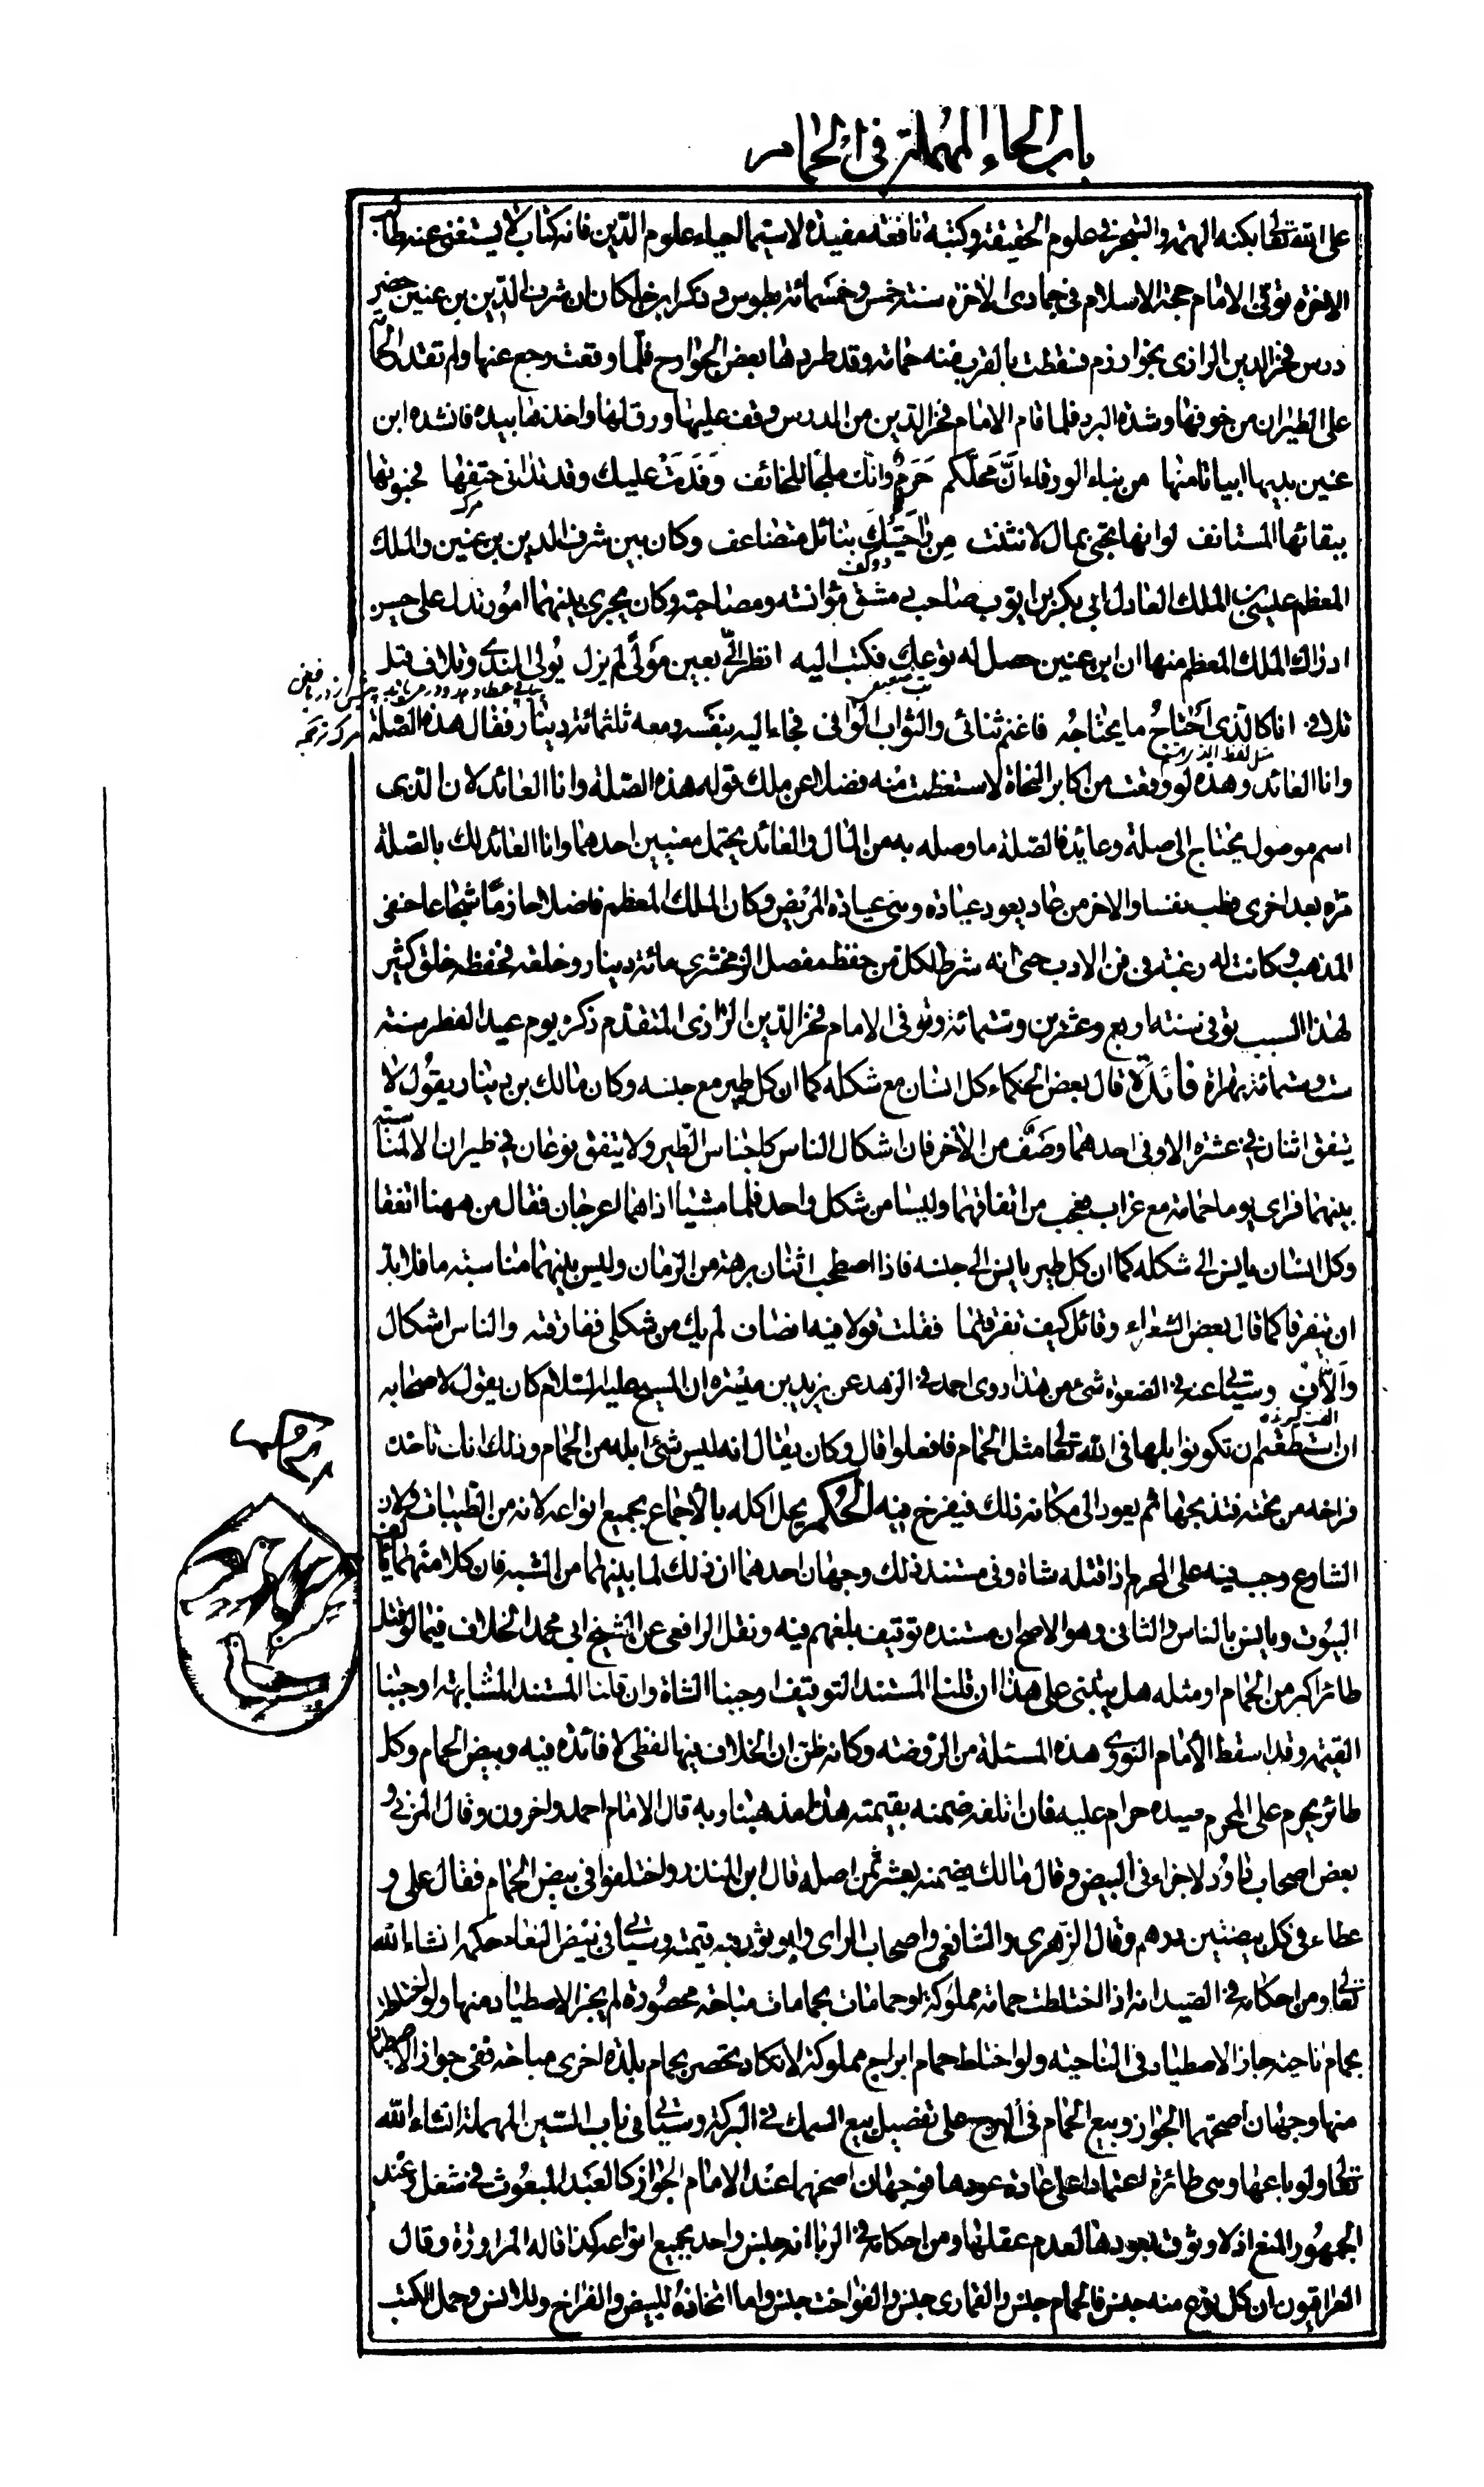 باب الحاء المهملة في الحمام
على الله تعالى بكنه الهمة والتبحر في علوم الحقيقة وكتبه نافعة مفيدة لا سيما احياء علوم الدين فانه كتاب لا يستغنى عنه طالب
الاخرة توفى الامام حجة الاسلام في جمادى الاخرة سنة خمس وخمسمائة بطوس وذكر ابن خلكان ان شرف الدين بن عنين حضر
درس فخر الدين الرازى بخوارزم فسقطت بالقرب منه حمامة وقد طردها بعض الجوارح فلما وقعت رجع عنها ولم تقدر الحمامة
على الطيران من خوفها وشدة البرد فلما قام الامام فخر الدين من الدرس وقف عليها ورق لها واخذها بيده فانشده ابن
عنين بديها ابياتا منها من نباء الورقاء انَّ محلّكم حَرَمٌ وانك ملجأ للخائف وَفَدَتْ عليك وقد تدانى حتفها فحبوتها
مرك
ببقائها المستانف لو انها تحبى بمال لانثنت مِن راحَتَيْكَ بنائل متضاعف وكان بين شرف الدين بن عنين والملك
دو كف
المعظم عيسى بن الملك العادل ابى بكر بن ايوب صاحب دمشق مؤانسة ومصاحبة وكان يجرى بينهما امور تدل على حسن
ادراك الملك المعظم منها ان ابن عنين حصل له توعك فكتب اليه انظر الىّ بعين مَولًى لم يزل يُولى الندى وتلاف قبل
تلافى انا كالذى اَحْتاجُ ما يحتاجُه فاغنم ثنائى والثواب الوافى فجاء اليه بنفسه ومعه ثلثمائة دينار فقال هذه الصلة
مثل لفظ الذى
وانا العائد وهذه لو وقعت من اكابر النحاة لاستعظمت منه فضلا عن ملك قوله هذه الصلة وانا العائد لان الذى
اسم موصول يحتاج الى صلة وعائد فالصلة ما وصله به من المال والعائد يحتمل معنيين احدهما وانا العائد لك بالصلة
مرة بعد اخرى فطب نفسا والاخر من عاد يعود عيادة وهى عيادة المريض وكان الملك المعظم فاضلا حازمًا شجاعا حنفى
المذهب وكانت له رغبة في فن الادب حتى انه شرط لكل من حفظ مفصل الزمخشرى مائة دينار وخلعة فحفظه خلق كثير
لهذا السبب توفى سنة اربع وعشرين وستمائة وتوفى الامام فخر الدين الرازى المتقدم ذكره يوم عيد الفطر سنة
ست وستمائة بهراة فائدة قال بعض الحكماء كل انسان مع شكله كما ان كل طير مع جنسه وكان مالك بن دينار يقول لا
يتفق اثنان في عشرة الا وفى احدهما وصف من الاخر فان اشكال الناس كاجناس الطير ولا يتفق نوعان في طيران الا لمناسبة
بينهما فراى يوما حمامة مع غراب فعجب من اتفاقهما وليسا من شكل واحد فلما مشيا اذا هما اعرجان فقال من ههنا اتفقا
وكل انسان يانس الى شكله كما ان كل طير يانس الى جنسه فاذا اصطحب اثنان برهة من الزمان وليس بينهما مناسبة ما فلا بد
ان يتفرقا كما قال بعض الشعراء وقائل كيف تفرقتما فقلت قولا فيه انصاف لم يك من شكلى ففارقته والناس اشكال
والآف وسياتى عنه في الصعوة شئ من هذا روى احمد في الزهد عن يزيد بن ميسرة ان المسيح عليه السلام كان يقول لاصحابه
ان استطعتم ان تكونوا بلها في الله تعالى مثل الحمام فافعلوا قال وكان يقال انه ليس شئ ابله من الحمام وذلك انك تاخذ
فراخه من تحته فتذبحها ثم يعود الى مكانه ذلك فيفرخ فيه الحُكم يحل اكله بالاجماع بجميع انواعه لانه من الطيبات ولان
الشارع وجب فيه على المحرم اذا قتله شاة وفى مستند ذلك وجهان احدهما ان ذلك لما بينهما من الشبه فان كلا منهما يالف
البيوت ويانس بالناس والثانى وهو الاصح ان مستنده توقيف بلغهم فيه ونقل الرافعى عن الشيخ ابى محمد الخلاف فيما لو قتل
طائرا اكبر من الحمام او مثله هل يبتنى على هذا ان قلنا المستند التوقيف اوجبنا الشاة وان قلنا المستند المشابهة اوجبنا
القيمة وقد اسقط الامام النووى هذه المسئلة من الروضة وكانه ظن ان الخلاف فيها لفظى لا فائدة فيه وبيض الحمام وكل
طائر يحرم على المحرم صيده حرام عليه فان اتلفه ضمنه بقيمته هذا مذهبنا وبه قال الامام احمد واخرون وقال المزنى و
بعض اصحاب داود لا جزاء فى البيض وقال مالك يضمنه بعشر ثمن اصله قال ابن المنذر واختلفوا فى بيض الحمام فقال على و
عطاء فى كل بيضتين درهم وقال الزهرى والشافعى واصحاب الراى وابو ثور فيه قيمته وسياتى فى بيض النعام حكمه انشاء الله
تعالى ومن احكامه في الصيد انه اذا اختلطت حمامة مملوكة او حمامات بحمامات مباحة محصورة لم يجز الاصطياد منها ولو اختلطت
بحمام ناحية جاز الاصطياد فى الناحية ولو اختلط حمام ابراج مملوكة لا تكاد تحصر بحمام بلدة اخرى مباحة ففى جواز الاصطياد
منها وجهان اصحهما الجواز وبيع الحمام فى البرج على تفصيل بيع السمك في البركة وسياتى فى باب السين المهملة انشاء الله
تعالى ولو باعها وهى طائرة اعتمادا على عادة عودها فوجهان اصحهما عند الامام الجواز كالعبد المبعوث في شغل وعند
الجمهور المنع اذ لا وثوق بعودها لعدم عقلها ومن احكامه في الربا انه جنس واحد بجميع انواعه كذا قاله المراوزة وقال
العراقيون ان كل نوع منه جنس فالحمام جنس والقمارى جنس والفواخت جنس واما اتخاذه للبيض والفراخ وللانس وحمل الكتب